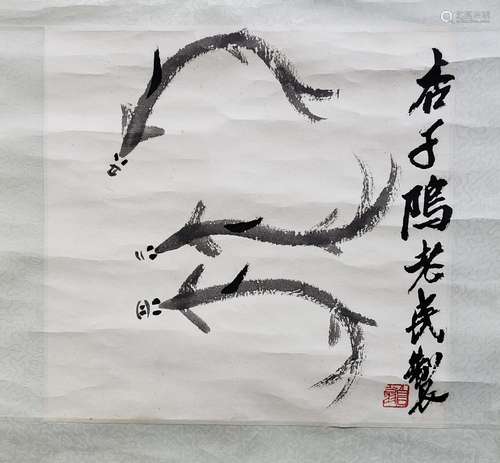 杏子隖老民製